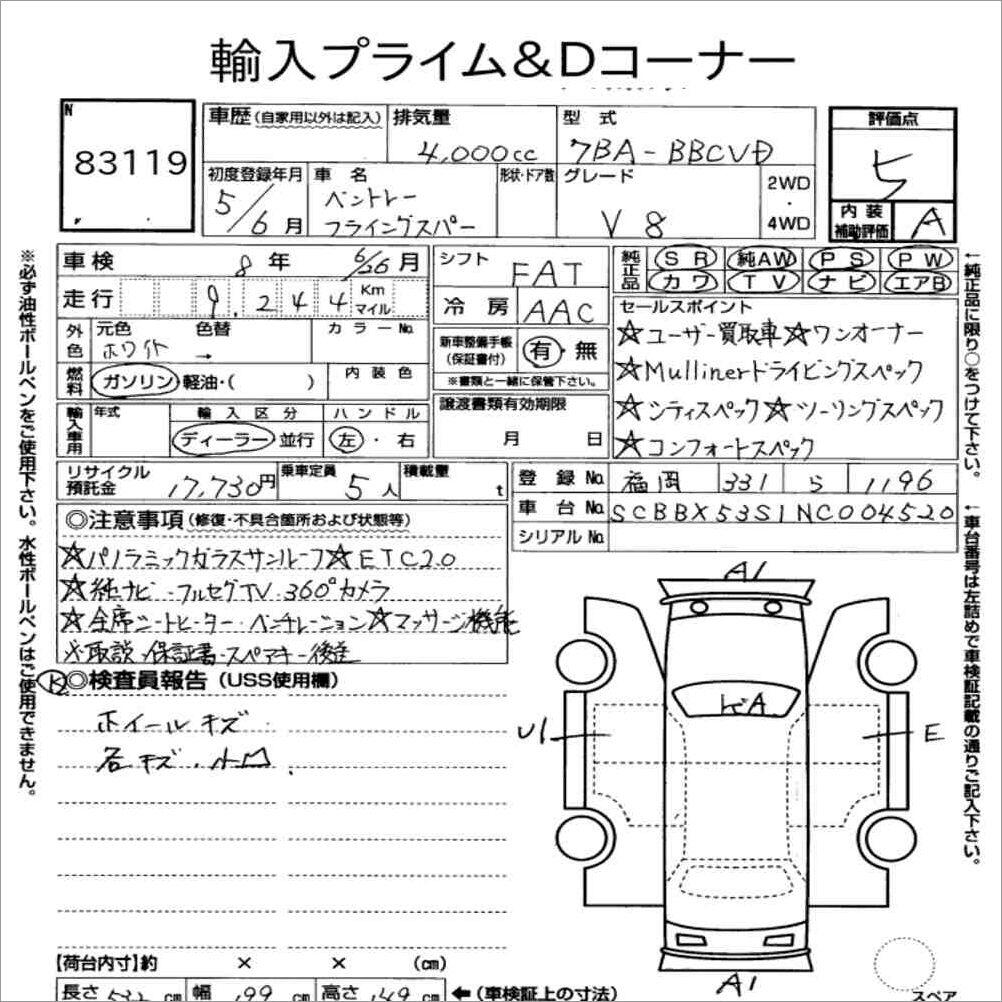 輸入プライム&Dコーナー
N
83119
車歴 (自家用以外は記入)
排気量
4,000cc
型 式
7BA-BBCVD
評価点
5
初度登録年月
5/6月
車 名
ベントレー
フライングスパー
形状・ドア数
グレード
V8
2WD
・
4WD
内装
補助評価
A
車検
8 年 6/26 月
シフト
FAT
純正品
SR 純AW PS PW
カワ TV ナビ エアB
走行
9,244 Km
マイル
冷房
AAC
セールスポイント
☆ユーザー買取車☆ワンオーナー
☆Mullinerドライビングスペック
☆シティスペック☆ツーリングスペック
☆コンフォートスペック
外色
元色
ホワイト
色替
→
カラーNo.
新車整備手帳
(保証書付)
有・無
※書類と一緒に保管下さい。
燃料
ガソリン・軽油・( )
内装色
輸入車用
年式
輸入区分
ディーラー・並行
ハンドル
左・右
譲渡書類有効期限
月 日
リサイクル
預託金
17,730円
乗車定員
5人
積載量
t
登録 No.
福岡 331 ら 1196
車台 No.
SCBBX53S1NC004520
シリアル No.
◎注意事項 (修復・不具合箇所および状態等)
☆パノラミックガラスサンルーフ☆ETC2.0
☆純ナビ・フルセグTV・360°カメラ
☆全席シートヒーター・ベンチレーション☆マッサージ機能
※取説・保証書・スペアキー後送
K
◎検査員報告 (USS使用欄)
ホイールキズ
各キズ・小凹
A1
ドA
U1
E
A1
スペア
【荷台内寸】約 × × (cm)
長さ 532 cm 幅 199 cm 高さ 149 cm ←(車検証上の寸法)
※必ず油性ボールペンをご使用下さい。水性ボールペンはご使用できません。
←純正品に限り○をつけて下さい。
←車台番号は左詰めで車検証記載の通りご記入下さい。